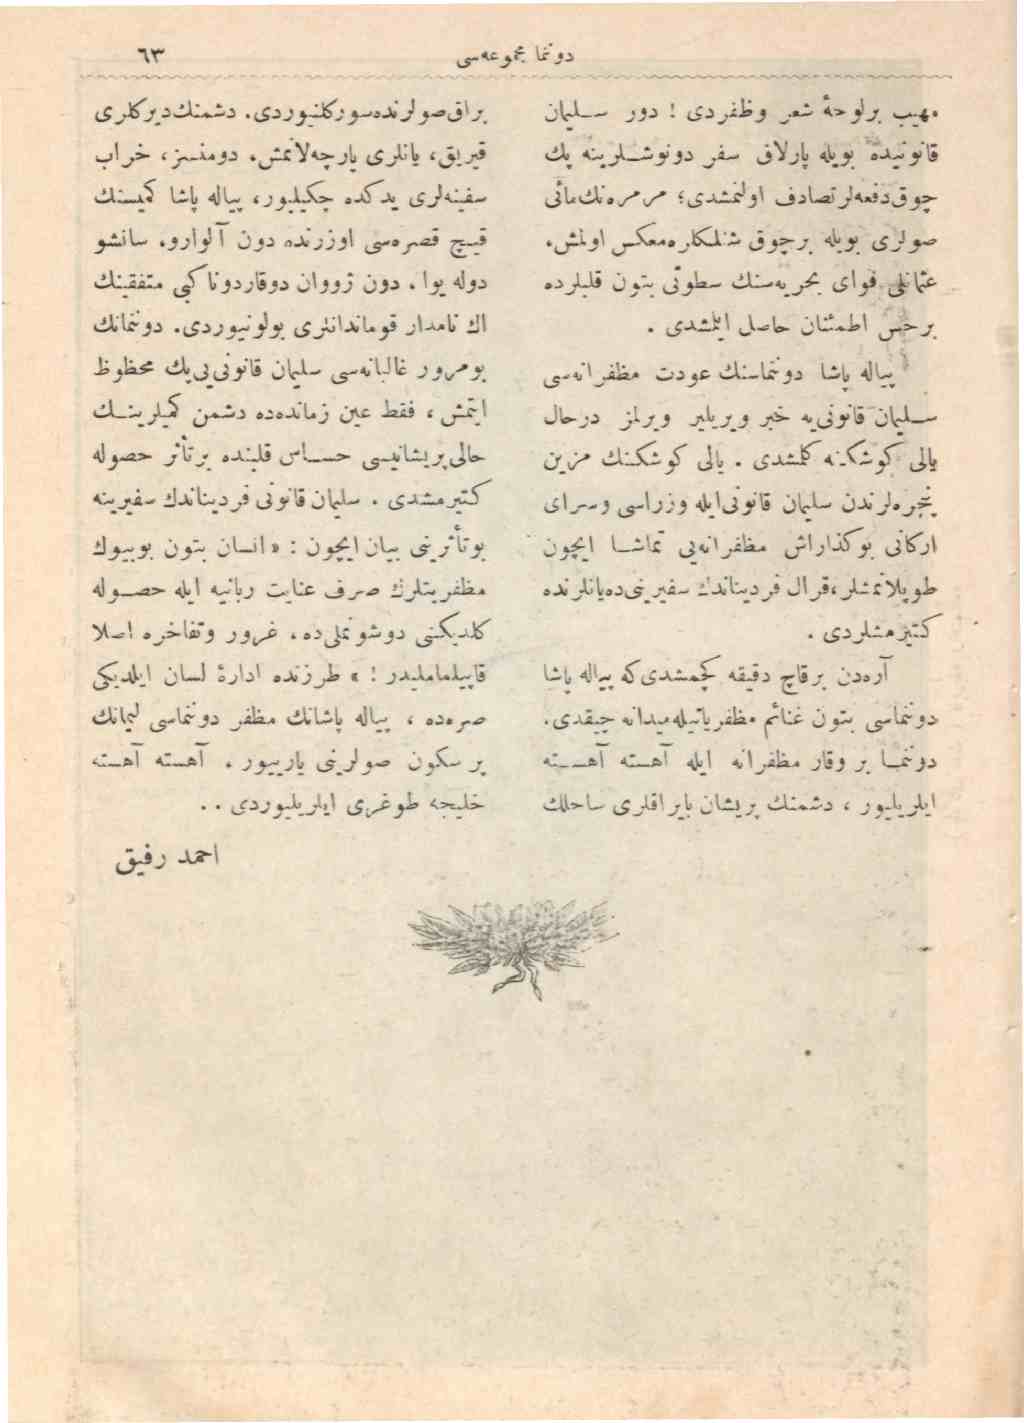 دونما مجموعه‌سی
٦٣
مهیب برلوحهٔ شعر وظفردی ! دور سلیمان
قانونیده بویله پارلاق سفر دونوشلرینه پك
چوق دفعه‌لر تصادف اولنمشدی؛ مرمره‌نك مائی
صولری بویله برچوق شنلكلره معكس اولمش،
عثمانلی قوای بحریه‌سنك سطوتی بتون قلبلرده
برحس اطمئنان حاصل ایتمشدی .
پیاله پاشا دونماسنك عودت مظفرانه‌سی
سلیمان قانونی‌یه خبر ویریلیر ویرلمز درحال
یالی كوشكنه كلمشدی . یالی كوشكنك مزین
پنجره‌لرندن سلیمان قانونی ایله وزراسی وسرای
اركانی بوكذاراش مظفرانه‌یی تماشا ایچون
طوپلانمشلر، قرال فردیناندك سفیرینی ده یانلرنده
كتیرمشلردی .
آره‌دن برقاچ دقیقه كچمشدی كه پیاله پاشا
دونماسی بتون غنائم مظفریاتیله میدانه چیقدی.
دونما بر وقار مظفرانه ایله آهسته آهسته
ایلریلیور ، دشمنك پریشان بایراقلری ساحلك
براق صولرنده سوركلنیوردی. دشمنك دیركلری
قیریق، یانلری پارچه‌لانمش، دومنسز، خراب
سفینه‌لری یدكده چكیلیور، پیاله پاشا كمیسنك
قیچ قصره‌سی اوزرنده دون آلوارو، سانشو
دوله یوا ، دون ژووان دوقاردونا كبی متفقینك
اك نامدار قوماندانلری بولونیوردی. دونمانك
بومرور غالبانه‌سی سلیمان قانونی‌یی پك محظوظ
ایتمش ، فقط عین زمانده‌ده دشمن كمیلرینك
حالی پریشانیسی حساس قلبنده برتأثر حصوله
كتیرمشدی . سلیمان قانونی فردیناندك سفیرینه
بوتأثرینی بیان ایچون : « انسان بتون بوبیوك
مظفریتلرك صرف عنایت ربانیه ایله حصوله
كلدیكنی دوشونملی ده ، غرور وتفاخره اصلا
قاپیلماملیدر ! » طرزنده ادارهٔ لسان ایلدیكی
صره‌ده ، پیاله پاشانك مظفر دونماسی لیمانك
پر سكون صولرینی یارییور ، آهسته آهسته
خلیجه طوغری ایلریلیوردی . .
احمد رفیق